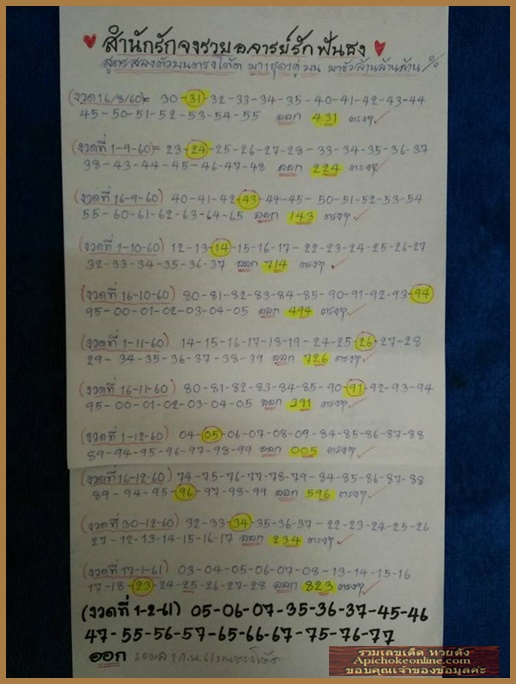 สำนักรักจงรวย อาจารย์รัก ฟันธง
สูตรสองตัวบนตรงโต๊ด
(งวด 16/8/60)= 30-31-32-33-34-35-40-41-42-43-44
45-50-51-52-53-54-55 ออก 431 ตรงๆ
(งวดที่ 1-9-60)= 23-24-25-26-27-28-33-34-35-36-37
38-43-44-45-46-47-48 ออก 224 ตรงๆ
(งวดที่ 16-9-60) 40-41-42-43-44-45-50-51-52-53-54
55-60-61-62-63-64-65 ออก 143 ตรงๆ
(งวดที่ 1-10-60) 12-13-14-15-16-17-22-23-24-25-26-27
32-33-34-35-36-37 ออก 714 ตรงๆ
(งวดที่ 16-10-60) 80-81-82-83-84-85-90-91-92-93-94
95-00-01-02-03-04-05 ออก 494 ตรงๆ
(งวดที่ 1-11-60) 14-15-16-17-18-19-24-25-26-27-28
29-34-35-36-37-38-39 ออก 726 ตรงๆ
(งวดที่ 16-11-60) 80-81-82-83-84-85-90-91-92-93-94
95-00-01-02-03-04-05 ออก 391 ตรงๆ
(งวดที่ 1-12-60) 04-05-06-07-08-09-84-85-86-87-88
89-94-95-96-97-98-99 ออก 005 ตรงๆ
(งวดที่ 16-12-60) 74-75-76-77-78-79-84-85-86-87-88
89-94-95-96-97-98-99 ออก 596 ตรงๆ
(งวดที่ 30-12-60) 32-33-34-35-36-37-22-23-24-25-26
27-12-13-14-15-16-17 ออก 234 ตรงๆ
(งวดที่ 17-1-61) 03-04-05-06-07-08-13-14-15-16
17-18-23-24-25-26-27-28 ออก 823 ตรงๆ
(งวดที่ 1-2-61) 05-06-07-35-36-37-45-46
47-55-56-57-65-66-67-75-76-77
ออก
รวมเลขเด็ด หวยดัง
Apichokeonline.com
ขอบคุณเจ้าของข้อมูลค่ะ